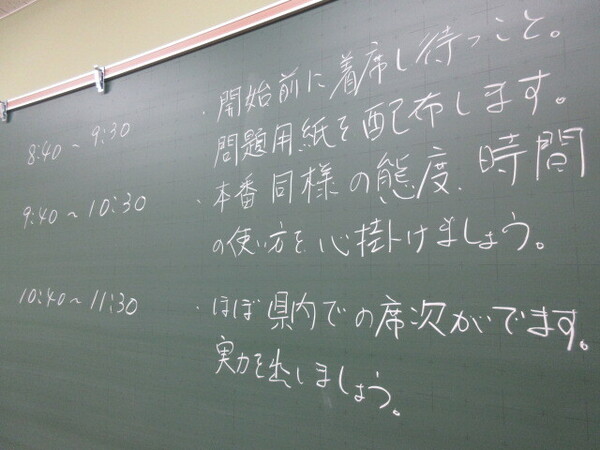 8:40～9:30
・開始前に着席し待つこと。
問題用紙を配布します。
9:40～10:30
・本番同様の態度、時間
の使い方を心掛けましょう。
10:40～11:30
・ほぼ県内での席次がでます。
実力を出しましょう。